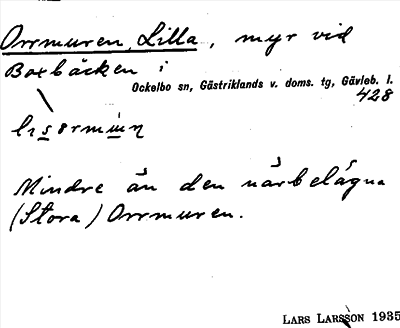 Orrmuren, Lilla, myr vid
Boxbäcken i
Ockelbo sn, Gästriklands v. doms. tg, Gävleb. l.
428
Mindre än den närbelägna
(Stora) Orrmuren.
LARS LARSSON 1935